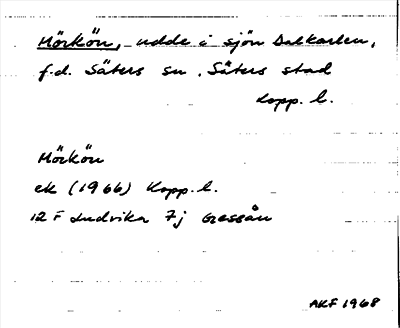 Mörkön, udde i sjön Dalkarlen,
f.d. Säters sn, Säters stad
Kopp. l.
Mörkön
ek (1966) Kopp. l.
12 F Ludvika 7j Gessån
AKF 1968